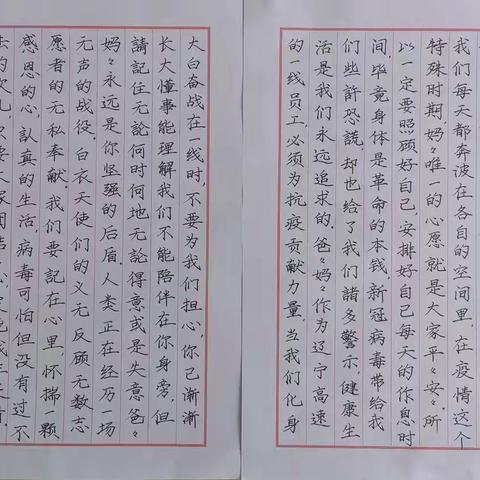 我们每天都奔波在各自的空间里,在疫情这个
特殊时期,妈々唯一的心愿就是大家平々安々.所
以一定要照顾好自己,安排好自己每天的作息时
间,毕竟身体是革命的本钱.新冠病毒带给我
们些許恐慌,却也给了我们諸多警示,健康生
活是我们永远追求的.爸々妈々作为辽宁高速
的一线员工,必须为抗疫贡献力量,当我们化身
大白奋战在一线时,不要为我们担心,你已漸漸
长大懂事能理解我们不能陪伴在你身旁,但
請記住无論何时何地无論得意或是失意爸々
妈々永远是你坚强的后盾.人类正在经历一场
无声的战役.白衣天使们的义无反顾无数志
愿者的无私奉献.我们要記在心里,怀揣一颗
感恩的心,認真的生活,病毒可怕但没有过不